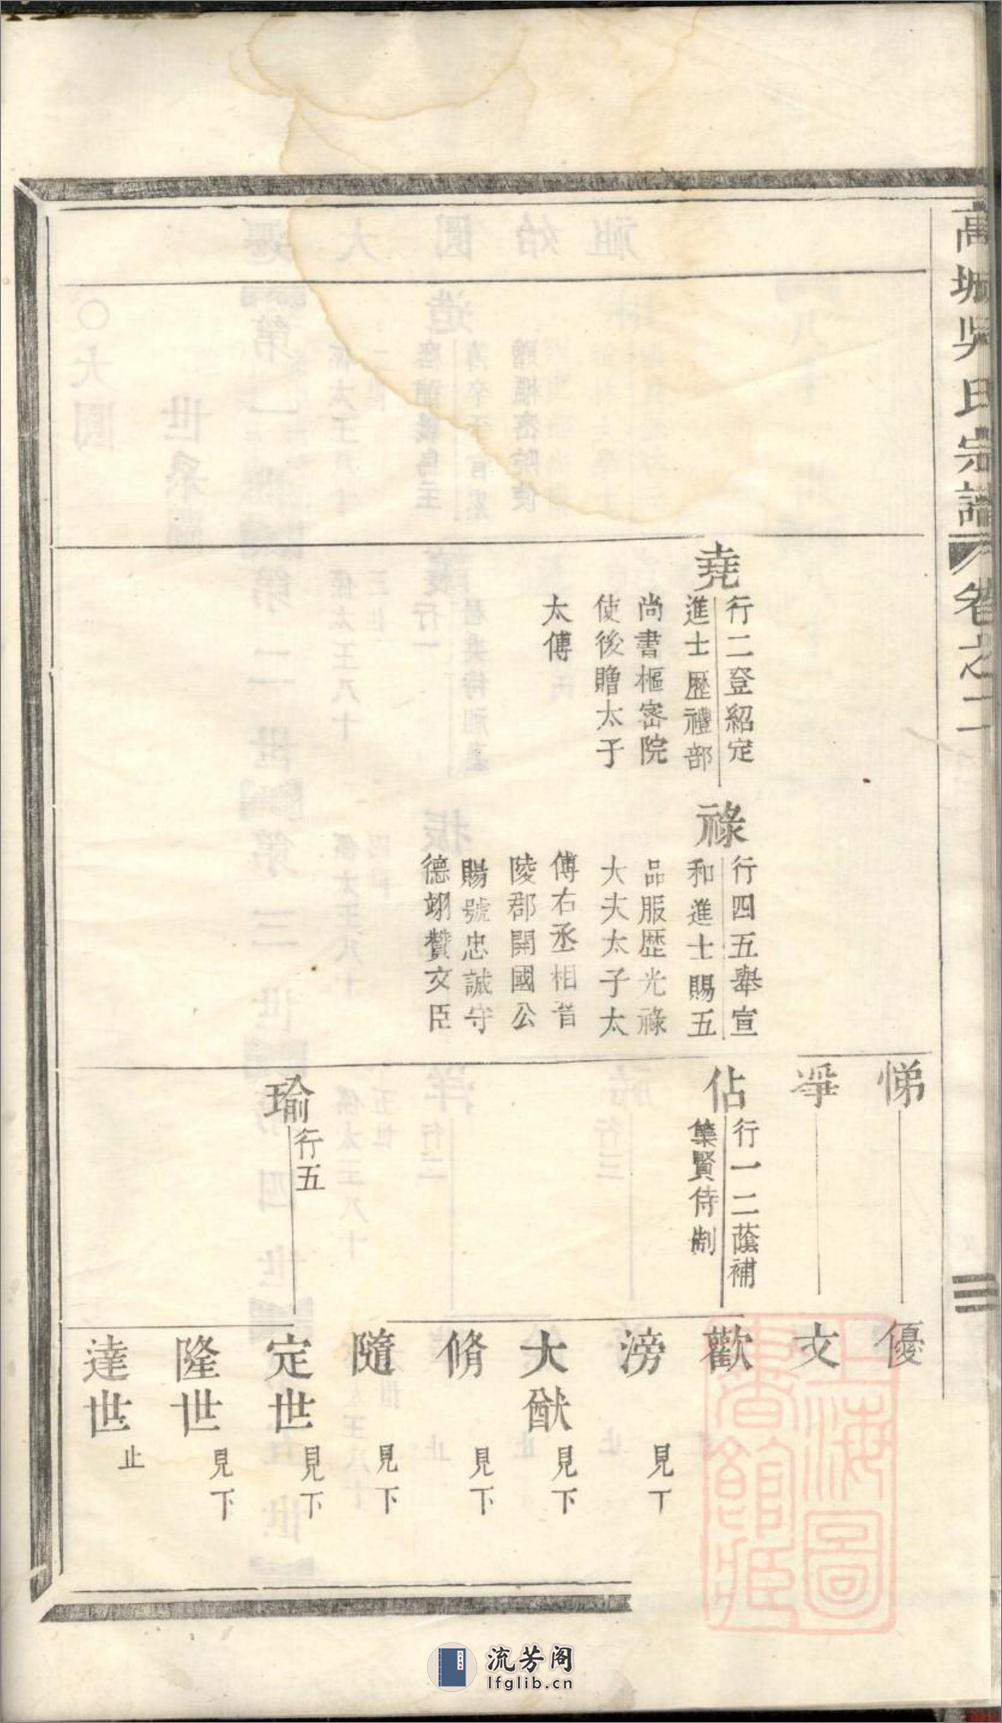 高城吳氏宗譜
卷之二
三
堯
行二登紹定
進士歷禮部
尚書樞密院
使後贈太子
太傅
祿
行四五舉宣
和進士賜五
品服歷光祿
大夫太子太
傅右丞相晋
陵郡開國公
賜號忠誠守
德翊贊文臣
悌
佔
行一二蔭補
集賢侍制
瑜
行五
優
文
歡
滂
見下
大猷
見下
脩
見下
隨
見下
定世
見下
隆世
見下
達世
止
上海圖書館藏
流芳阁
lfglib.cn